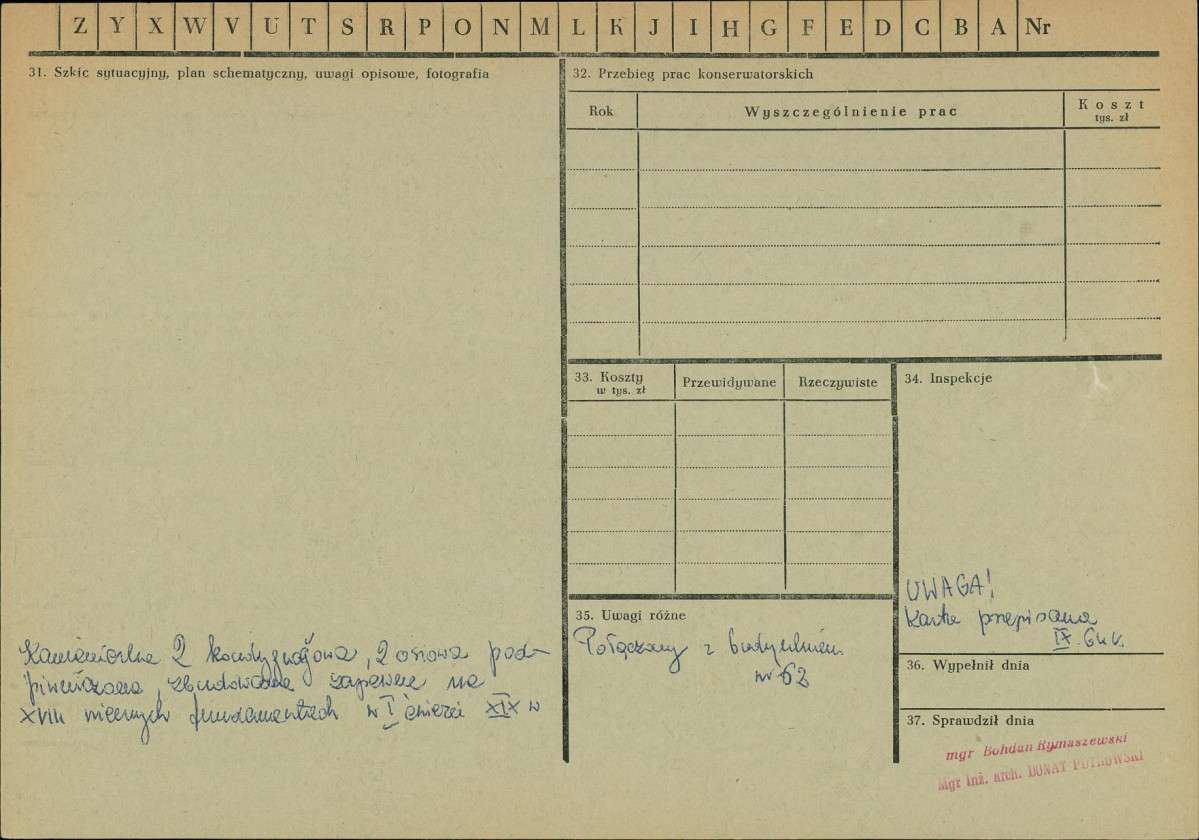 Z Y X W V U T S R P O N M L K J I H G F E D C B A Nr
31. Szkic sytuacyjny, plan schematyczny, uwagi opisowe, fotografia
Kamieniczka 2 kondygnacjowa, 2 osiowa pod-
piwniczona, zbudowana zapewne na
XVIII wiecznych fundamentach w I ćwierci XIX w
32. Przebieg prac konserwatorskich
Rok Wyszczególnienie prac Koszt
tys. zł
33. Koszty
w tys. zł
Przewidywane Rzeczywiste
34. Inspekcje
UWAGA!
Karta przepisana
IX 64 r.
35. Uwagi różne
Połączony z budynkiem
nr 62
36. Wypełnił dnia
37. Sprawdził dnia
mgr Bohdan Rymaszewski
Mgr inż. arch. DONAT PUTKOWSKI